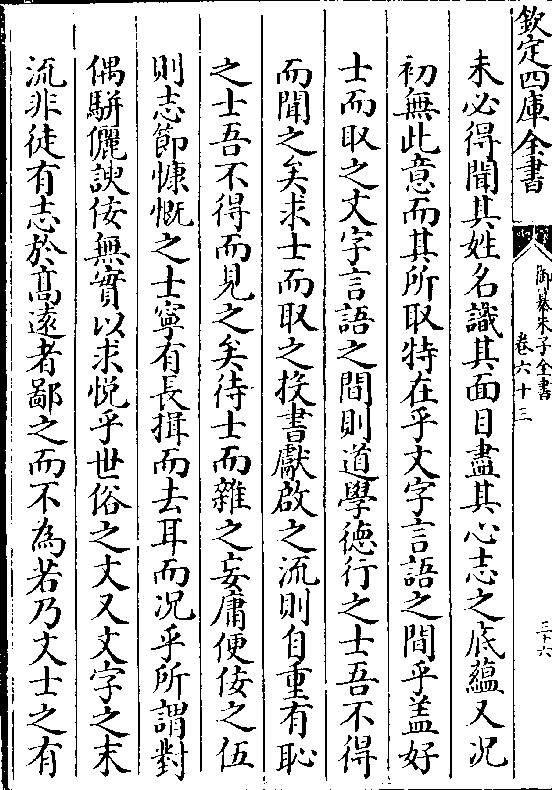 欽定四庫全書
御纂朱子全書
卷六十三
三十六
未必得聞其姓名識其面目盡其心志之底蘊又况
初無此意而其所取特在乎文字言語之間乎盖好
士而取之文字言語之間則道學徳行之士吾不得
而聞之矣求士而取之投書獻啟之流則自重有恥
之士吾不得而見之矣待士而雜之妄庸便佞之伍
則志節慷慨之士寧有長揖而去耳而况乎所謂對
偶駢儷諛佞無實以求悦乎世俗之文又文字之末
流非徒有志於髙逺者鄙之而不為若乃文士之有